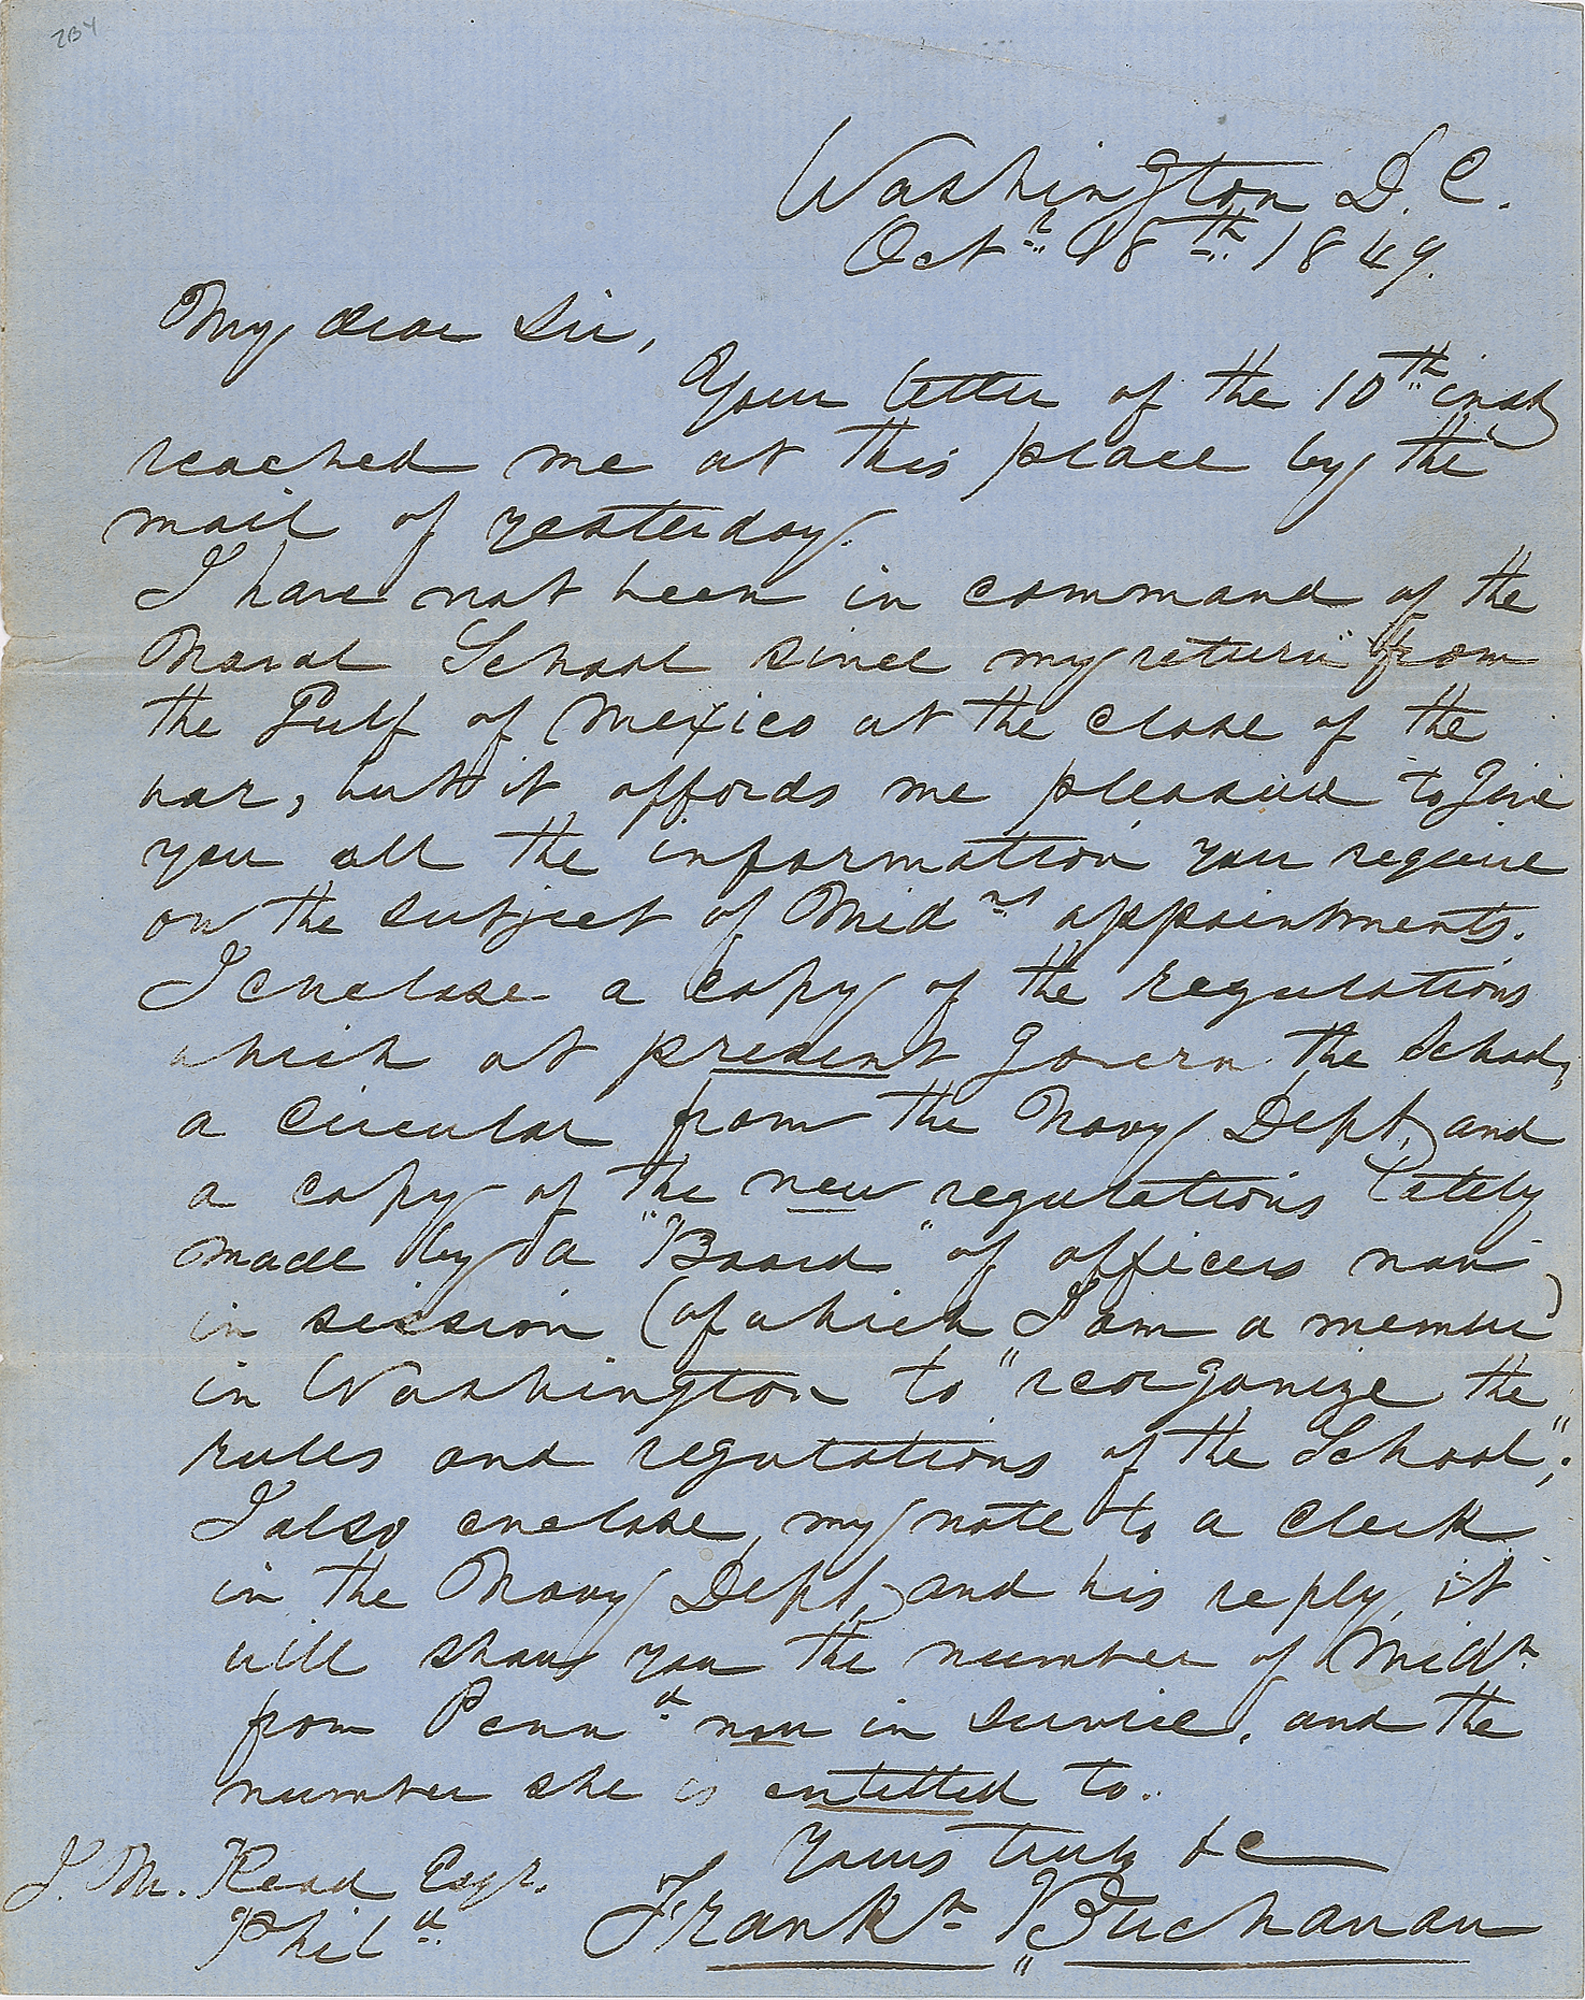 2B4
Washington D.C.
Octr 18th 1849.
My dear Sir,
Your letter of the 10th inst
reached me at this place by the
mail of yesterday.
I have not been in command of the
Naval School since my return from
the Gulf of Mexico at the close of the
war, but it affords me pleasure to give
you all the information you require
on the subject of Midns appointments.
I enclose a copy of the regulations
which at present govern the School,
a circular from the Navy Dept, and
a copy of the new regulations lately
made by a "Board" of officers now
in session (of which I am a member)
in Washington to "reorganize the
rules and regulations of the School";
I also enclose my note to a clerk
in the Navy Dept, and his reply, it
will show you the number of Midn
from Penna now in service, and the
number she is entitled to.
Yours truly &c
J. M. Read Esqr.
Phila
Frankn Buchanan